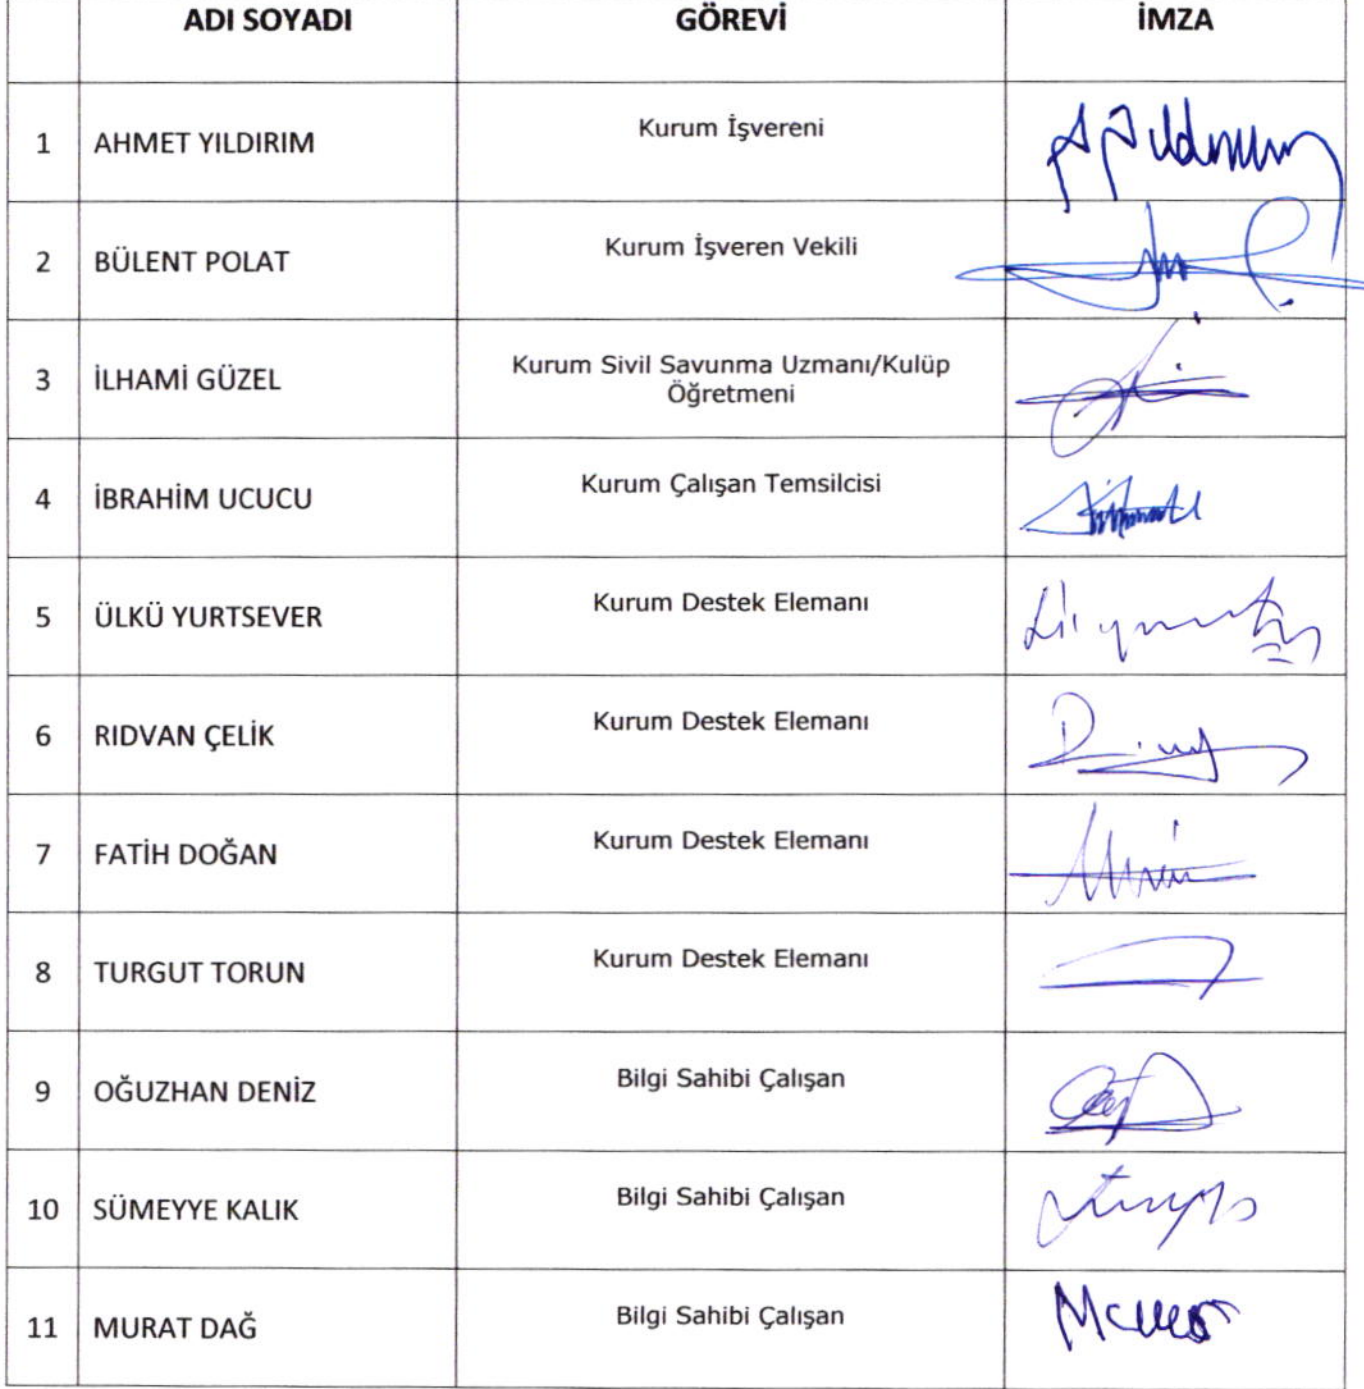 ADI SOYADI GÖREVİ İMZA
1 AHMET YILDIRIM Kurum İşvereni
2 BÜLENT POLAT Kurum İşveren Vekili
3 İLHAMİ GÜZEL Kurum Sivil Savunma Uzmanı/Kulüp
Öğretmeni
4 İBRAHİM UCUCU Kurum Çalışan Temsilcisi
5 ÜLKÜ YURTSEVER Kurum Destek Elemanı
6 RIDVAN ÇELİK Kurum Destek Elemanı
7 FATİH DOĞAN Kurum Destek Elemanı
8 TURGUT TORUN Kurum Destek Elemanı
9 OĞUZHAN DENİZ Bilgi Sahibi Çalışan
10 SÜMEYYE KALIK Bilgi Sahibi Çalışan
11 MURAT DAĞ Bilgi Sahibi Çalışan